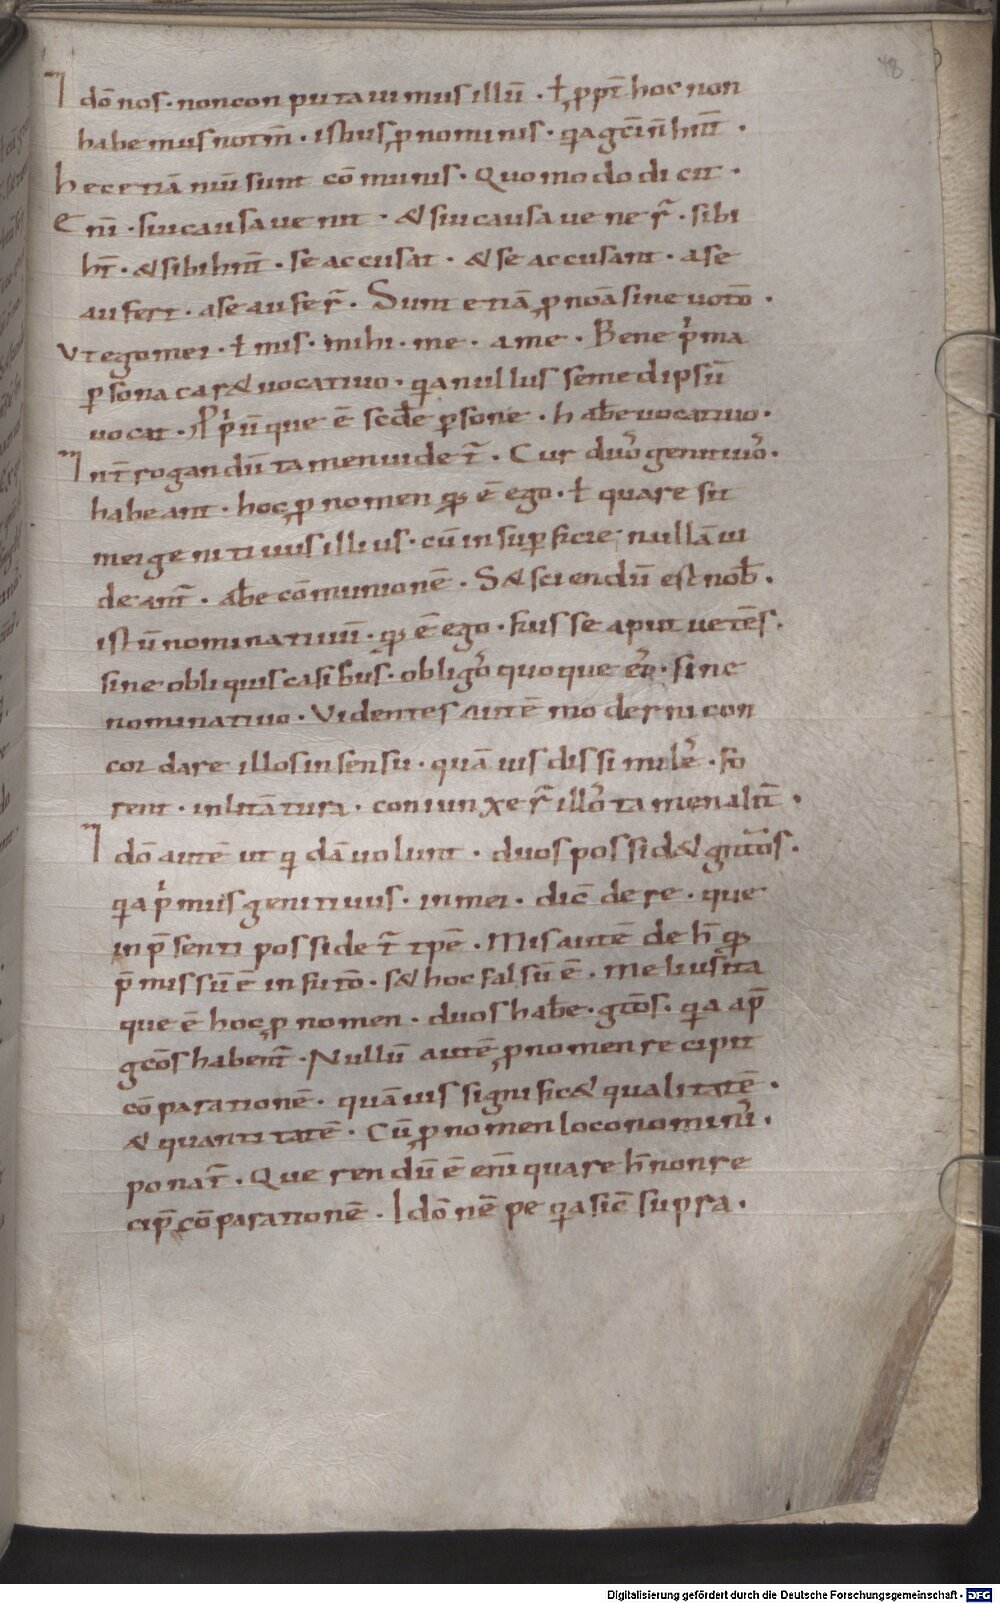 48
Idō nos · non conputauimus illū · ł ꝓpt̄ hoc non
habemus notm̄ · isbus ꝓnominis · qia gc̄in̄ hnt̄ ·
hec etiā niū sunt cōmunis · Quomodo dicit ·
Enī · siui causa uenit · & siui causa uener̄ · sibi
ht̄ · & sibi hnt̄ · se accusat · & se accusant · a se
aufert · a se aufer̄ · Sunt etiā ꝓnōa sine uotō ·
Vt ego mei · ł mis · mihi · me · a me · Bene pʼma
ꝑsona car& uocatiuo · qia nullus semedipsū
uocat · pʼūque ē scd̄e ꝑsone · hab̄e uocatiuo ·
Int̄rogandū tamen uidet̄ · Cur duoʼ genitiuoʼ
habeant · hoc ꝓnomen qđ ē ego · ł quare sit
mei genitiuus illius · cū in suꝑficie nullā ui
deant̄ · ab̄e cōmunionē · S& sciendū est nob̄ ·
istū nominatiuū · qđ ē ego · fuisse aput uetēs ·
sine obliquis casibus · obligoʼ quoque · sine
nominatiuo · Videntes autē moderni con
cordare illos in sensu · quāuis dissimileʼ · fo
rent · in litātura · coniunxer̄ illoʼ tamen alit̄ ·
Idō autē ut qidā uolunt · duos possid& gnt̄os ·
qia pʼmus genitiuus · in mei · dic̄ de re · que
in p̄senti possidet̄ tp̄e · Mis autē de h̄ qđ
p̄missū ē in futō · s& hoc falsū ē · Melius ita
que ē hoc ꝓnomen · duos hab̄e · gtōs · qia ap̄
gcōs habent̄ · Nullū autē ꝓnomen recipit
cōparationē · quāuis signific& qualitatē ·
& quantitatē · Cū ꝓnomen loco nominiʼ
ponat̄ · Querendū ē enī quare h̄ non re
cip̄ cōparationē · Idō nēpe qia sic̄ supra ·
Digitalisierung gefördert durch die Deutsche Forschungsgemeinschaft · DFG